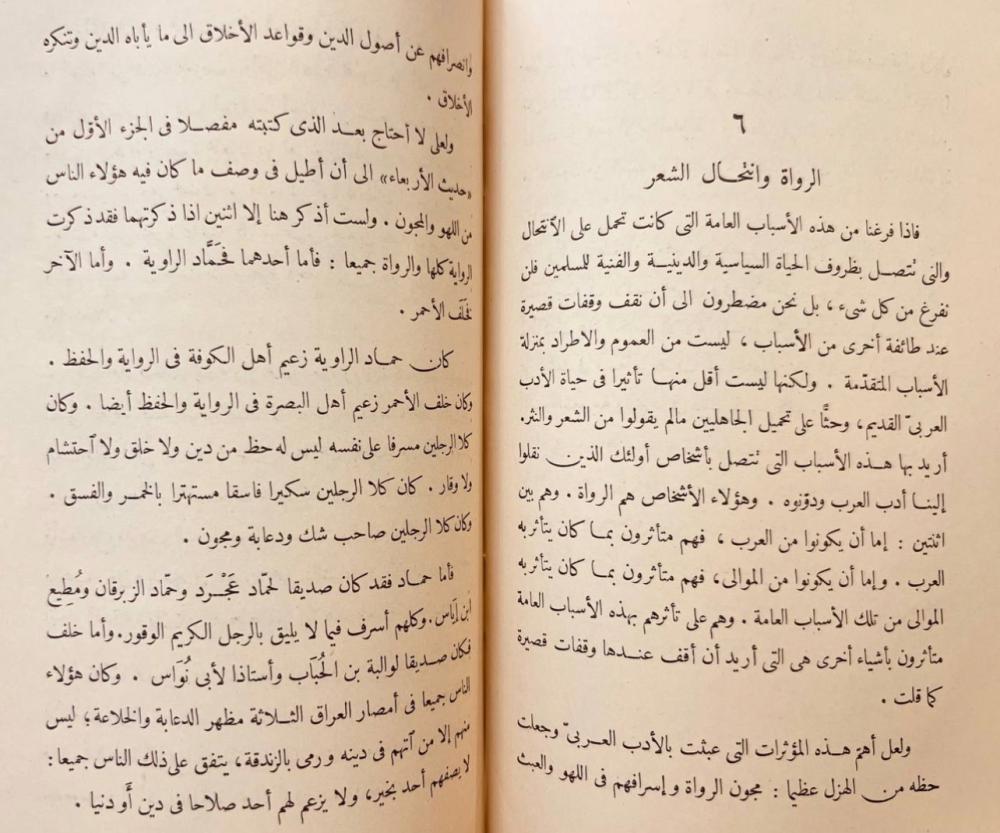 ٦
الرواة وانتحال الشعر
فاذا فرغنا من هذه الأسباب العامة التى كانت تحمل على الانتحال
والتى تتصل بظروف الحياة السياسية والدينية والفنية للمسلمين فلن
نفرغ من كل شىء، بل نحن مضطرون الى أن نقف وقفات قصيرة
عند طائفة أخرى من الأسباب، ليست من العموم والاطراد بمنزلة
الأسباب المتقدّمة . ولكنها ليست أقل منها تأثيرا فى حياة الأدب
العربىّ القديم، وحثًّا على تحميل الجاهليين مالم يقولوا من الشعر والنثر.
أريد بها هذه الأسباب التى تتصل بأشخاص أولئك الذين نقلوا
إلينا أدب العرب ودوّنوه . وهؤلاء الأشخاص هم الرواة . وهم بين
اثنتين : إما أن يكونوا من العرب ، فهم متأثرون بما كان يتأثر به
العرب . وإما أن يكونوا من الموالى، فهم متأثرون بما كان يتأثر به
الموالى من تلك الأسباب العامة . وهم على تأثرهم بهذه الأسباب العامة
متأثرون بأشياء أخرى هى التى أريد أن أقف عندها وقفات قصيرة
كما قلت .
ولعل أهمّ هذه المؤثرات التى عبثت بالأدب العربىّ وجعلت
حظه من الهزل عظيما : مجون الرواة وإسرافهم فى اللهو والعبث
وانصرافهم عن أصول الدين وقواعد الأخلاق الى ما يأباه الدين وتنكره
الأخلاق .
ولعلى لا أحتاج بعد الذى كتبته مفصلا فى الجزء الأوّل من
«حديث الأربعاء» الى أن أطيل فى وصف ما كان فيه هؤلاء الناس
من اللهو والمجون . ولست أذكر هنا إلا اثنين اذا ذكرتهما فقد ذكرت
الرواية كلها والرواة جميعا : فأما أحدهما فحَمَّاد الراوية . وأما الآخر
فخَلَف الأحمر .
كان حماد الراوية زعيم أهل الكوفة فى الرواية والحفظ .
وكان خلف الأحمر زعيم أهل البصرة فى الرواية والحفظ أيضا . وكان
كلا الرجلين مسرفا على نفسه ليس له حظ من دين ولا خلق ولا احتشام
ولا وقار . كان كلا الرجلين سكيرا فاسقا مستهترا بالخمر والفسق .
وكان كلا الرجلين صاحب شك ودعابة ومجون .
فأما حماد فقد كان صديقا لحمّاد عَجْرَد وحمّاد الزبرقان ومُطِيع
ابن إياس . وكلهم أسرف فيما لا يليق بالرجل الكريم الوقور . وأما خلف
فكان صديقا لوالبة بن الحُبَاب وأستاذا لأبى نُوَاس . وكان هؤلاء
الناس جميعا فى أمصار العراق الثلاثة مظهر الدعابة والخلاعة؛ ليس
منهم إلا من اتهم فى دينه ورمى بالزندقة، يتفق على ذلك الناس جميعا :
لا يصفهم أحد بخير، ولا يزعم لهم أحد صلاحا فى دين أو دنيا .